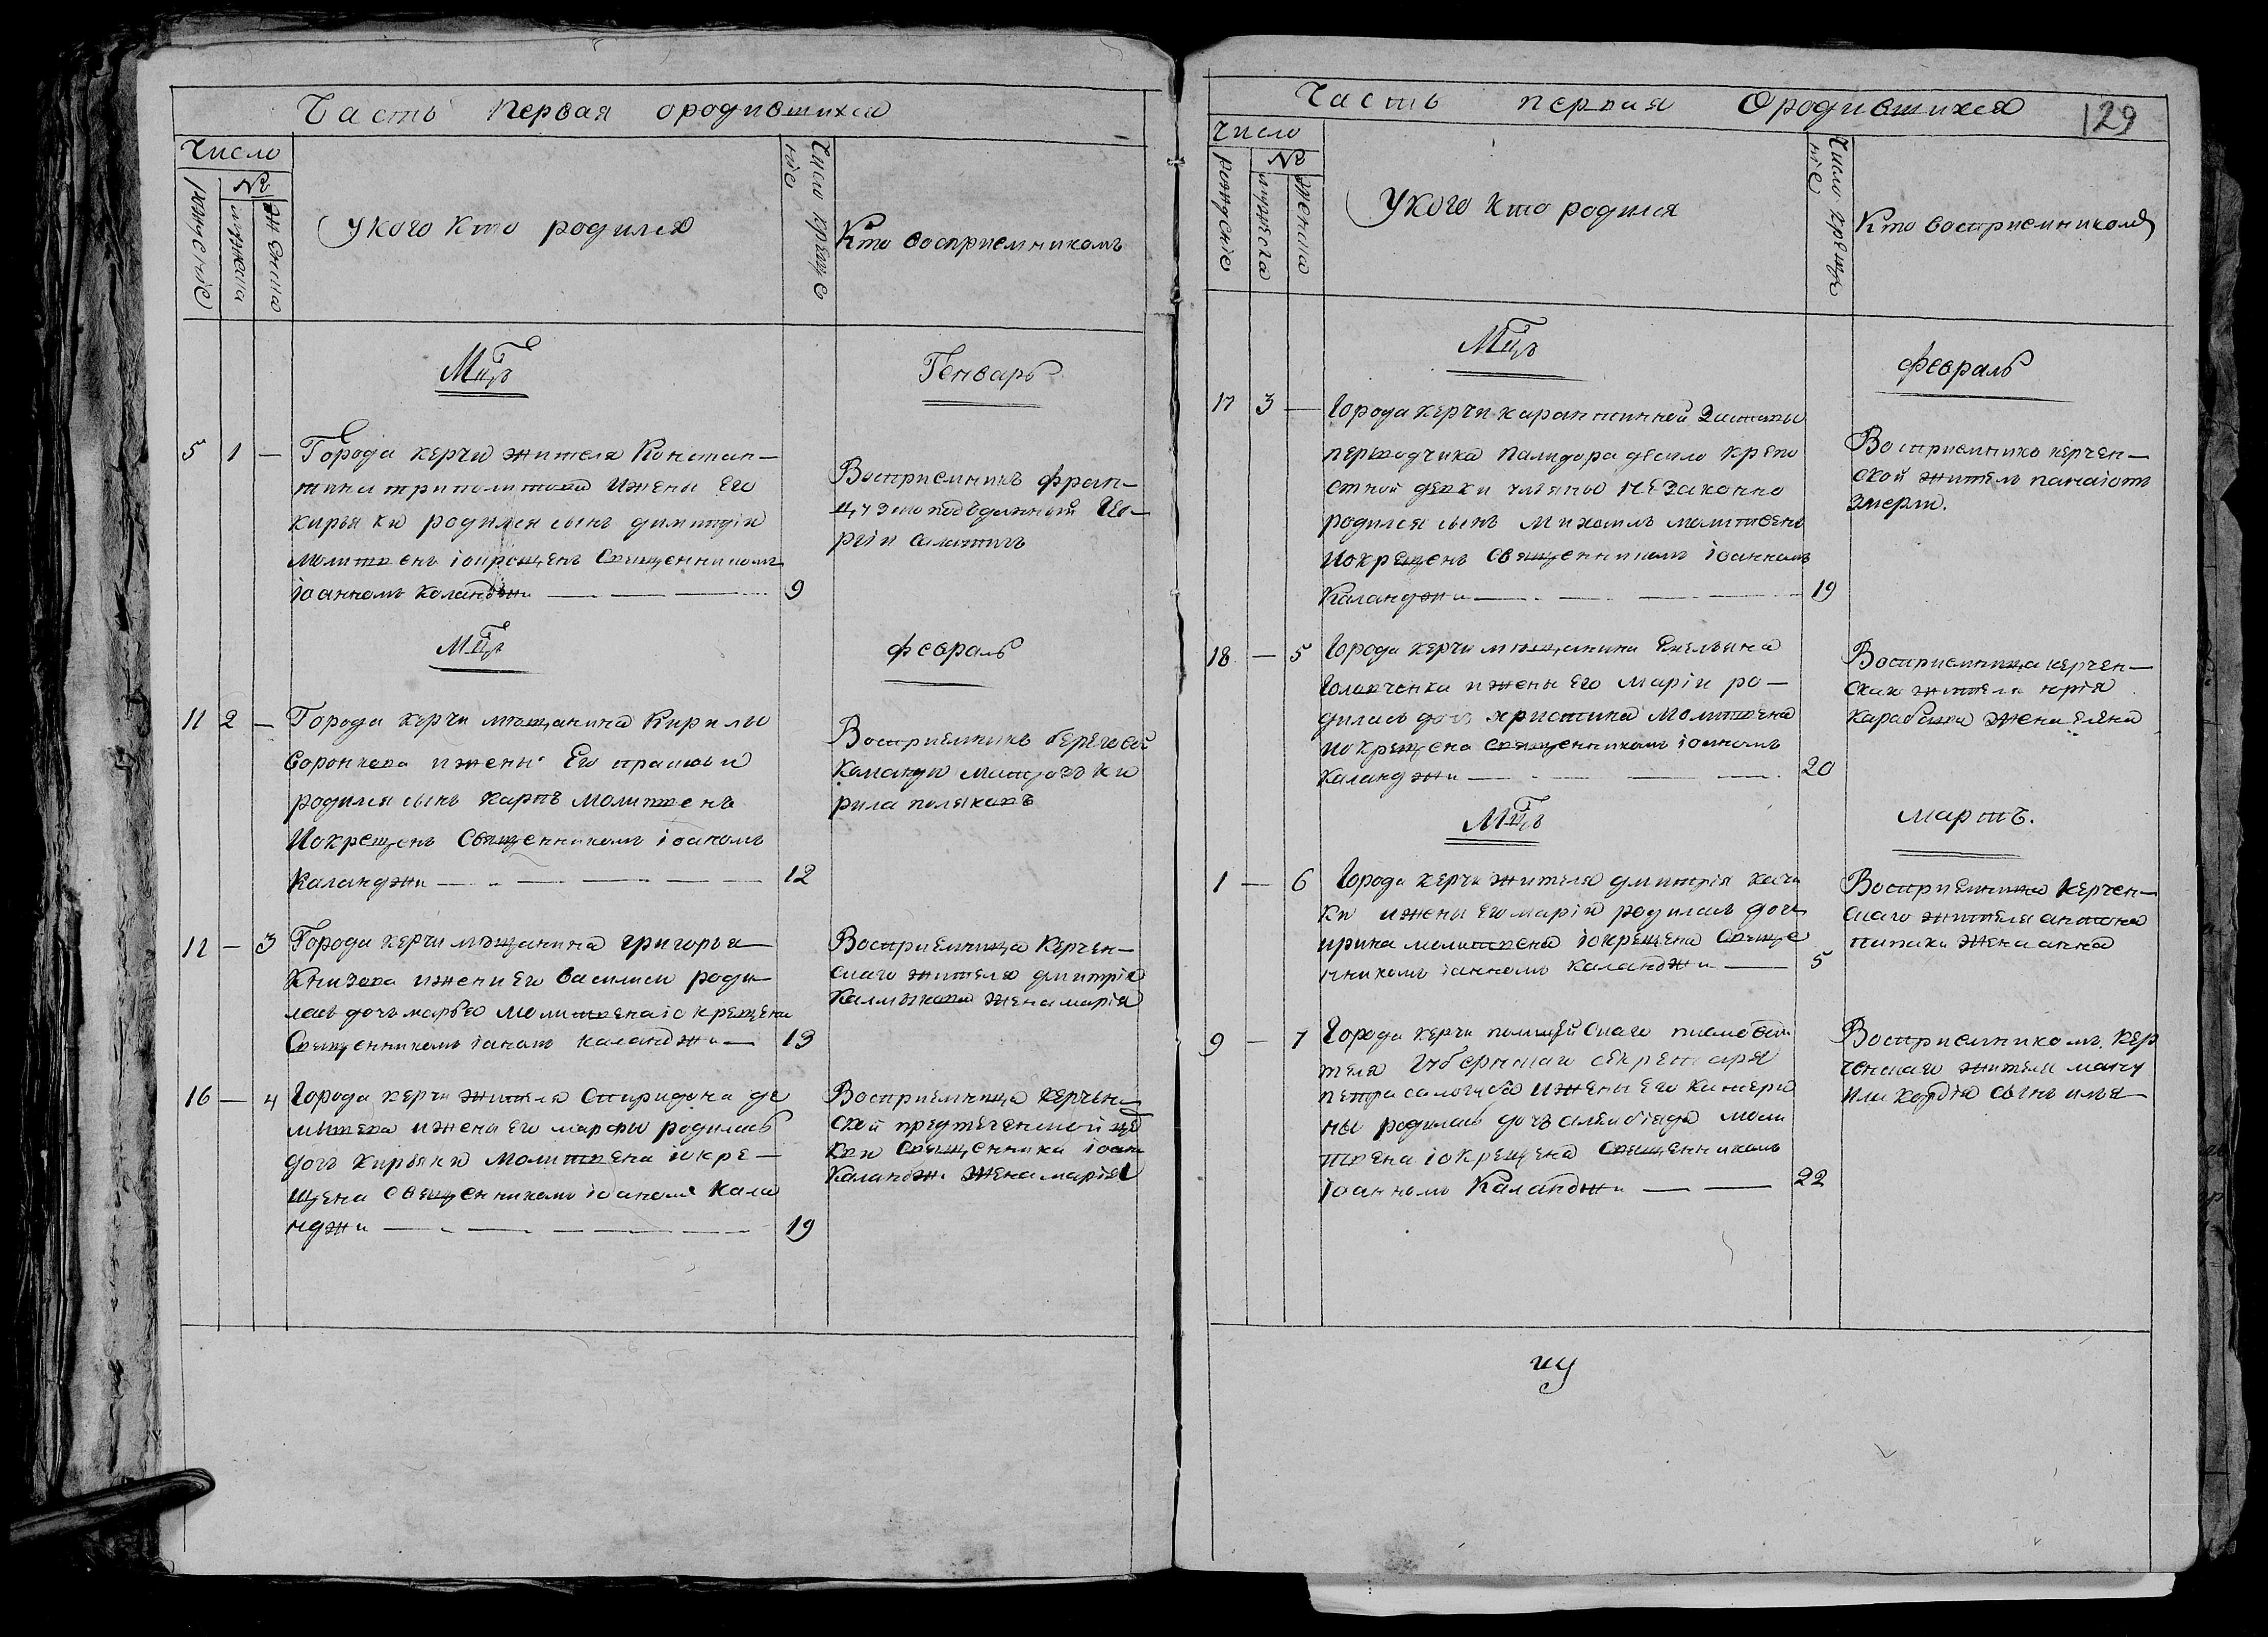 Часть первая ородившихся
Число
№
рождение
мужеска
женска
укого кто родился
Число креще
ніе
Кто восприемникомъ
Мцъ
Генварь
5 1 — Города керчи жителя Констан—
тина триполитова ижены его
кирьяки родился сынъ димитрій
молитвенъ іокрощенъ Священникомъ
іоанномъ Каланджи 9
Восприемникъ фран—
цузско подъданный Ге—
ргій
Мцъ
февраль
11 2 — Города керчи мещанина Кирилы
Сорокчова ижены Его
родился сынъ карпъ молитвенъ
Иокрещенъ Священникомъ іоаномъ
Каланджи 12
Восприемникъ береговой
Команды матрозъ ки
рила поляковъ
12 — 3 Города керчи мещанина григорья
Книзова ижени Его василиси роди—
лась дочъ марья молитвена іокрещена
Священникомъ іаномъ каланджи — 13
Восприемница Керчен—
скаго жителя дмитрія
Калмыкова жена марія
16 — 4 Города керчи жителя Спиридона де
ижены Его марфы родилась
дочъ кирьяки молитвена іокре—
щена Священникомъ іоаномъ кала
нджи 19
Восприемница Керчен—
ской предтеченской це
кви Священника іоан
Каланджи жена марія
Часть первая Ородившихся
129
Число
№
рождение
мужеска
женска
Укого кто родился
Число креще
ніе
Кто восприемникомъ
Мцъ
февраль
17 3 — Города керчи карантинной Заставы
переводчика Палидора крепо
стной девки ульяны незаконно
родился сынъ михаилъ молитвенъ
Иокрещенъ Священникомъ іоанномъ
Каланджи 19
Восприемникъ керчен—
ской житель панаіотъ
Змерли.
18 — 5 Города керчи мещанина Емельяна
Головченка ижены его маріи ро—
дилась дочь христина молитвена
иокрещена священникомъ іоанномъ
каланджи 20
Восприемница керчен—
скаго жителя юрія
карабаша жена елена
Мцъ
мартъ.
1 — 6 Города керчи жителя дмитрія кача
ки ижены его маріи родилась дочь
ирина молитвена іокрещена Свяще
нникомъ іанномъ каланджи — 5
Восприемница Керчен—
скаго жителя антона
папаки жена анна
9 — 7 Города керчи полицейскаго писмоводи
теля Губернскаго секретаря
петра ижены его катери
ны родилась дочъ моли
твена іокрещена Священникомъ
іоанномъ Каланджи — 22
Восприемникомъ кер
ченскаго жителя ману
ила кордіа сынъ илья